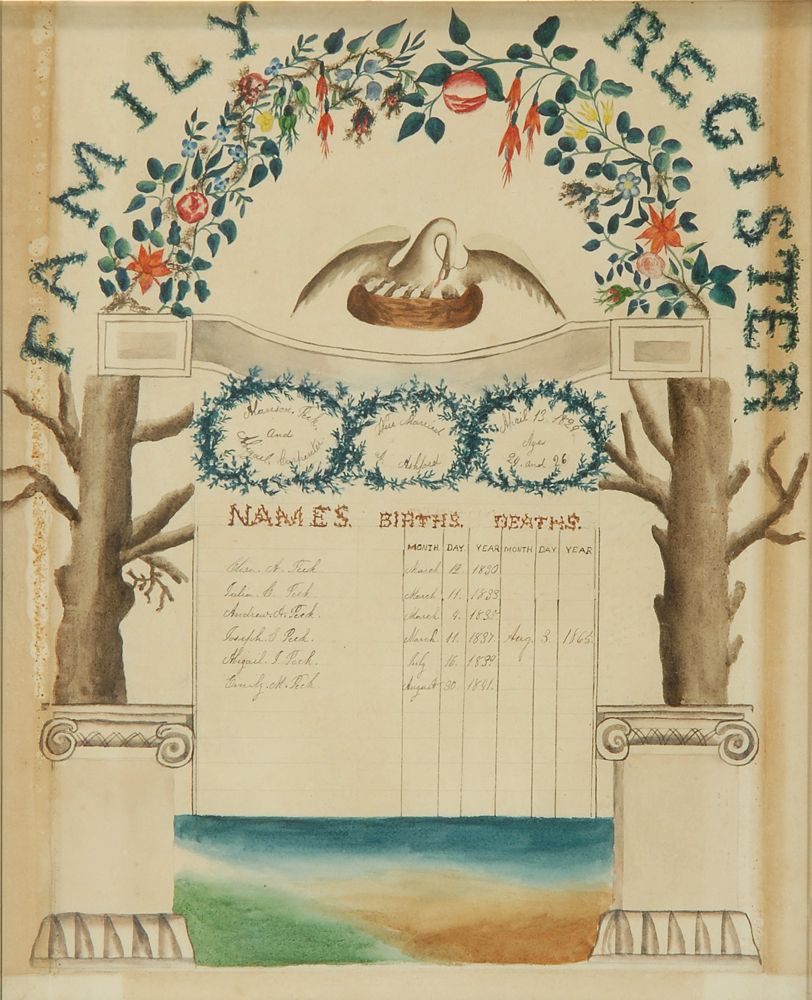 FAMILY REGISTER
Harison Peck
And
Abigail Carpenter
Was Married
Ashford
April 13, 1829
Ages
29. and 26
NAMES. BIRTHS. DEATHS.
MONTH DAY YEAR MONTH DAY YEAR
A. Peck March 12 1830
Julia C. Peck March 11. 1833
Andrew A. Peck. March 4. 1835
Joseph S Peck March 11. 1837. Aug 3. 1865
Abigail. I. Peck. July 16. 1839
Emily. M. Peck August 30. 1841.